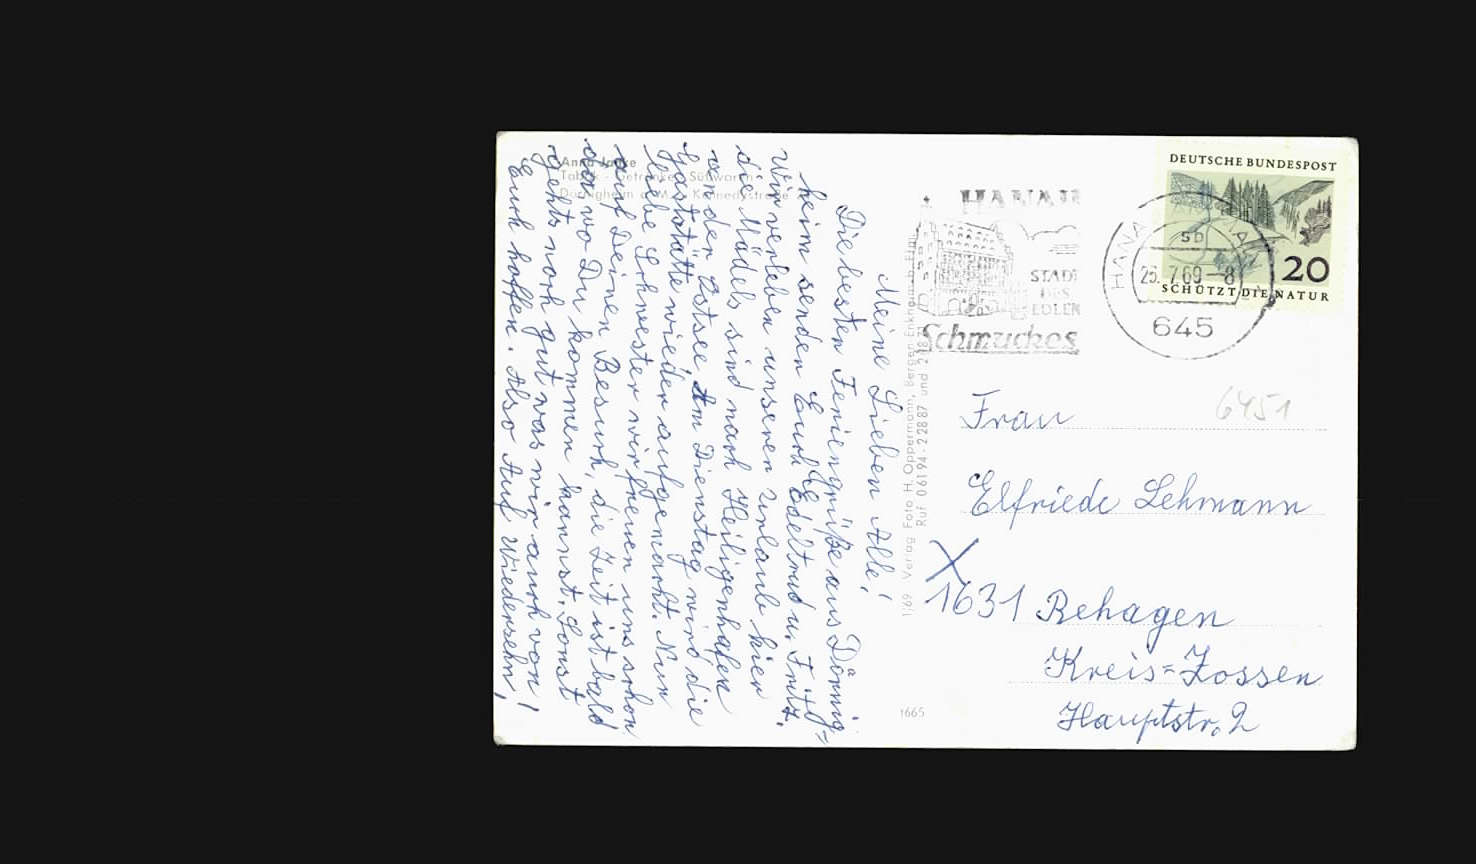 Anna Janke
Tabak - Getränke - Süßwaren
Dörnigheim a. M., Kennedystraße
Meine Lieben Alle!
Die besten Feriengrüße aus Dörnig=
heim senden Euch Edeltrud u. Fritz.
Wir verleben unseren Urlaub hier
die Mädels sind nach Heiligenhafen
an der Ostsee. Am Dienstag wird die
Gaststätte wieder aufgemacht. Nun
liebe Schwester wir freuen uns schon
auf Deinen Besuch, die Zeit ist bald
da wo Du kommen kannst. Sonst
gehts noch gut was wir auch von
Euch hoffen. Also Auf Wiedersehn!
1/69 Verlag Foto H. Oppermann, Bergen-Enkheim b. Ffm.
Ruf 06194-22887 und
1665
HANAU
STADT
DES
EDLEN
Schmuckes
HANAU
sb
25.7.69-8
645
DEUTSCHE BUNDESPOST
20
SCHÜTZT DIE NATUR
6451
Frau
Elfriede Lehmann
1631 Rehagen
Kreis=Zossen
Hauptstr. 2